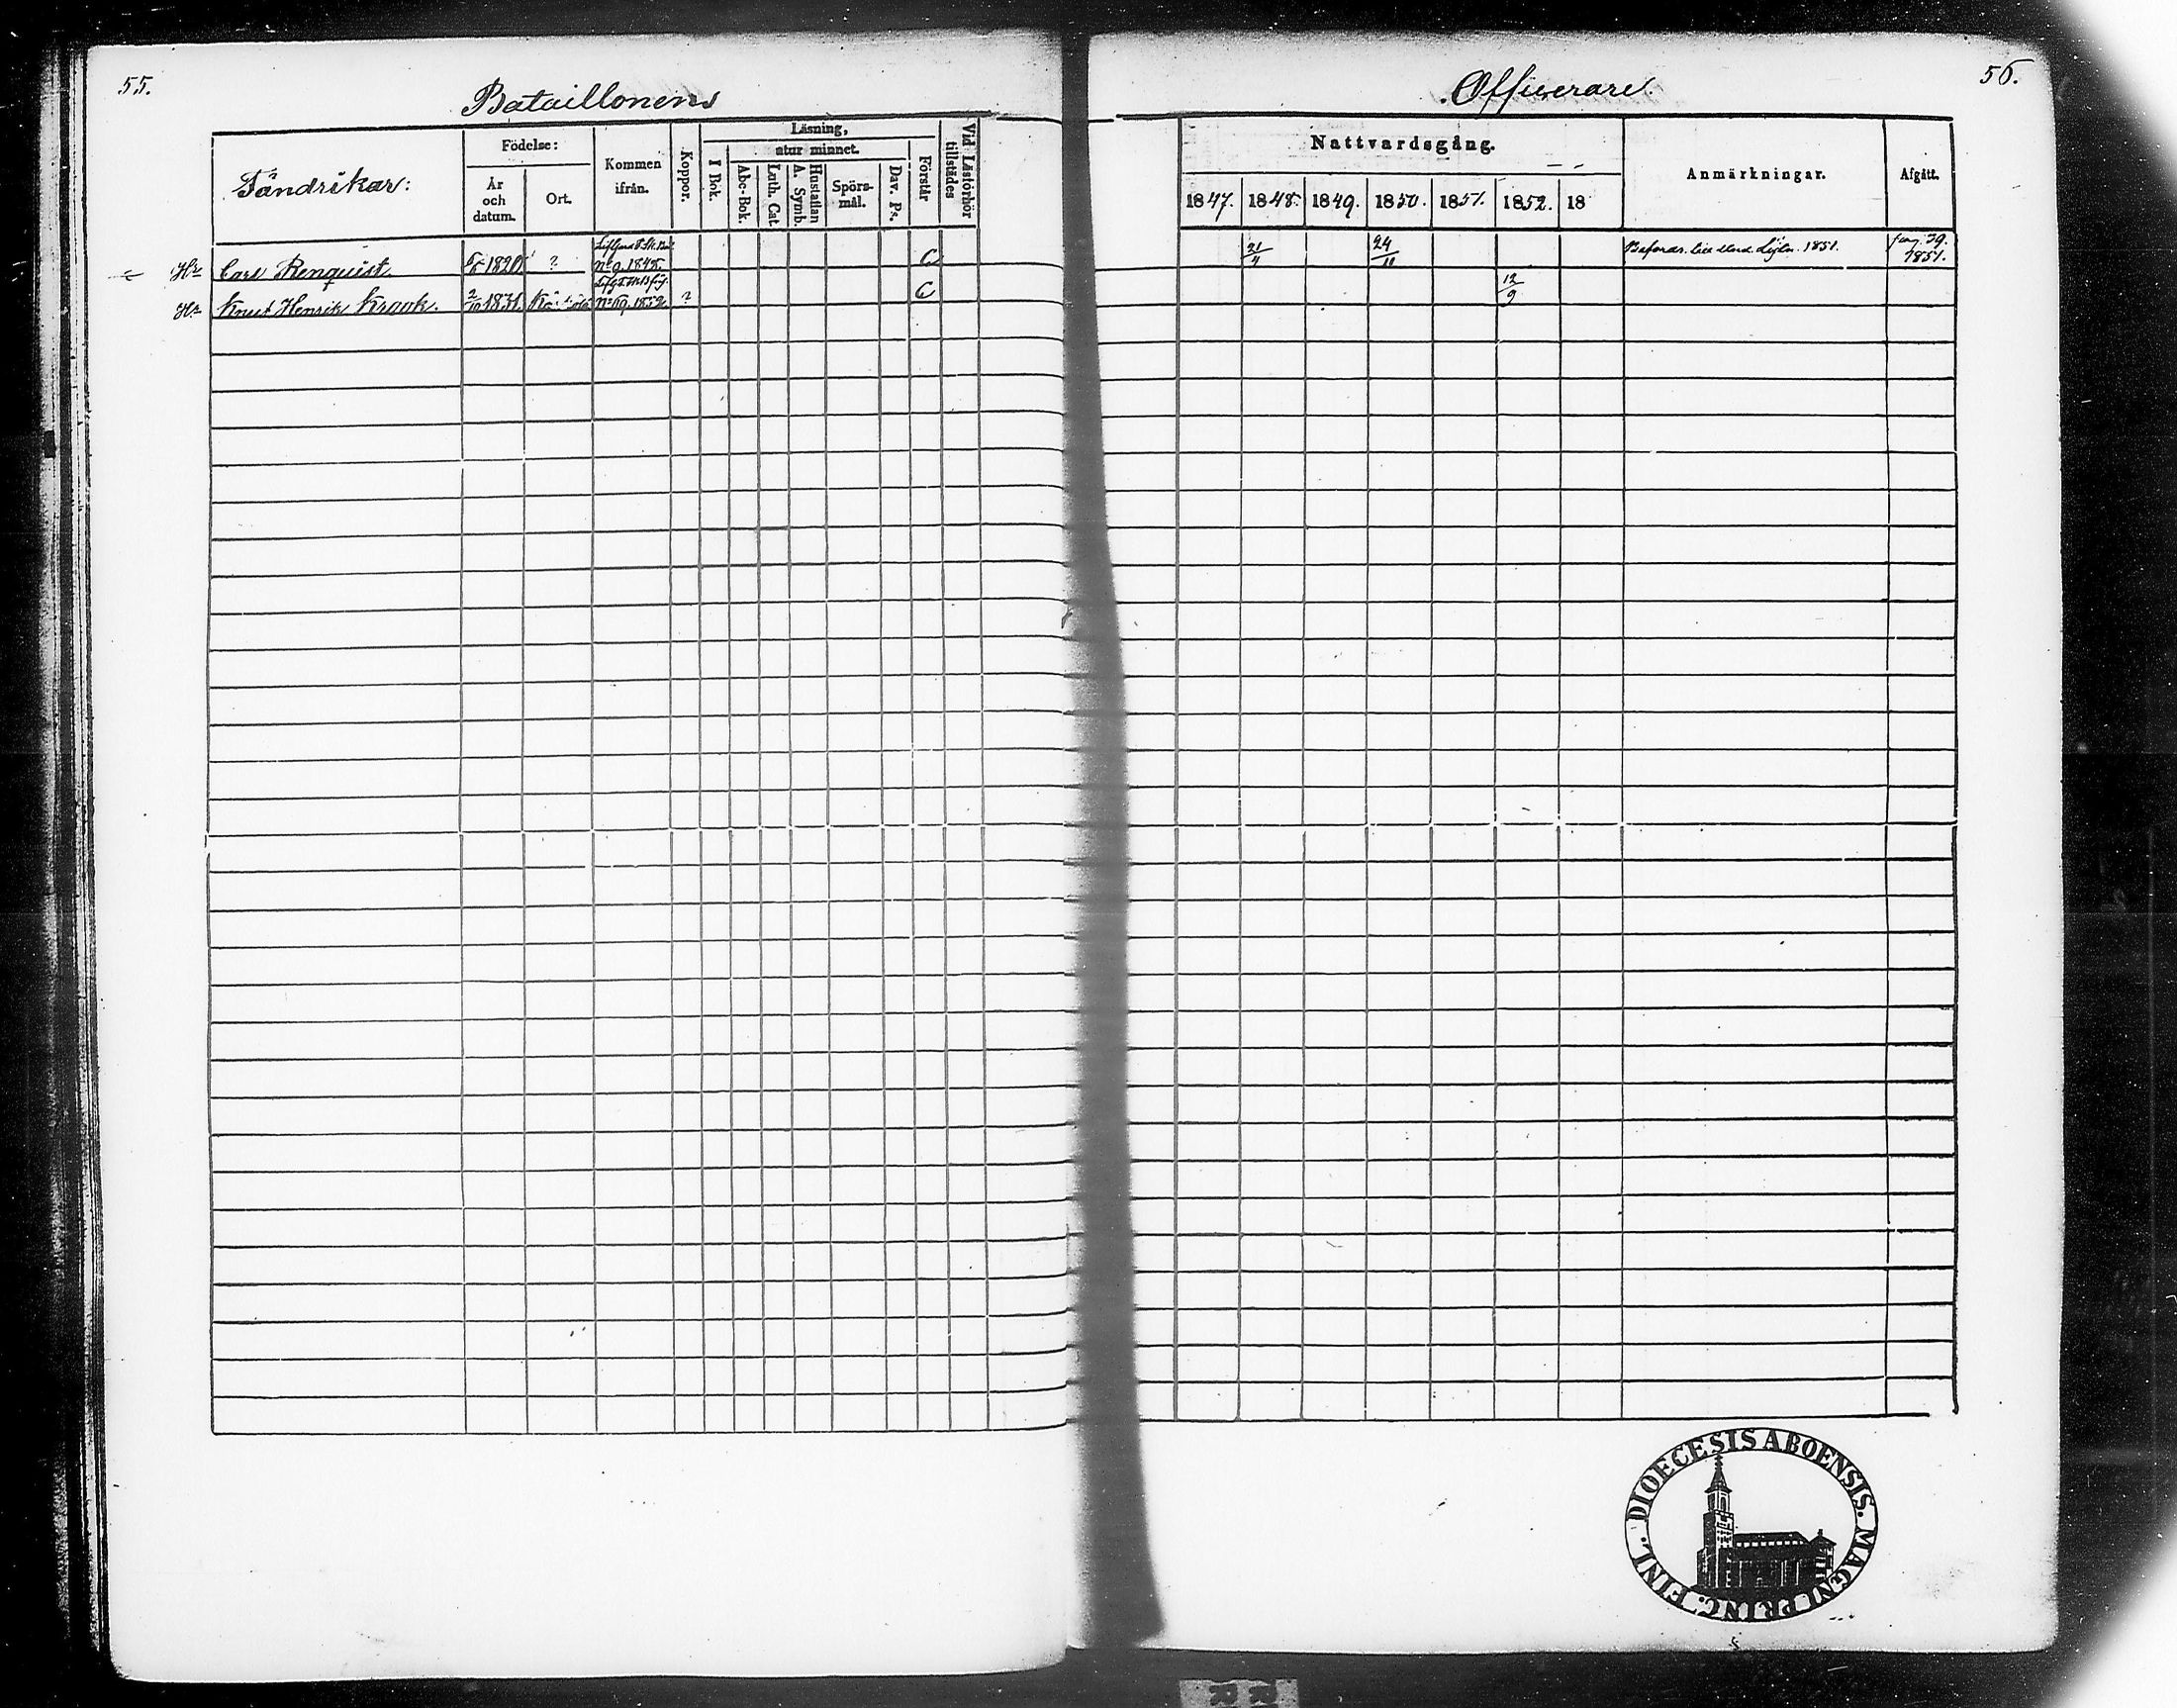 55.
Bataillonens
Officerare.
56.
Fändrikar:
Födelse:
År och datum.
Ort.
Kommen ifrån.
Koppor.
Läsning,
I Bok.
utur minnet.
Abc-Bok.
Luth. Cat.
Hustaflan A. Symb.
Spörsmål.
Dav. Ps.
Förstår
Vid Läsförhör tillstädes
Nattvardsgång.
1847. 1848. 1849. 1850. 1851. 1852. 18
Anmärkningar.
Afgått.
Hr Carl Renquist 1820 ? No 9. 1848. C 21/4 24/11 1851. 39. 1851.
Hr Knut Henrik Kraak. 2/10 1831 1852 ? C 12/9
DIOECESIS ABOENSIS. MAGNI PRINC. FINL.